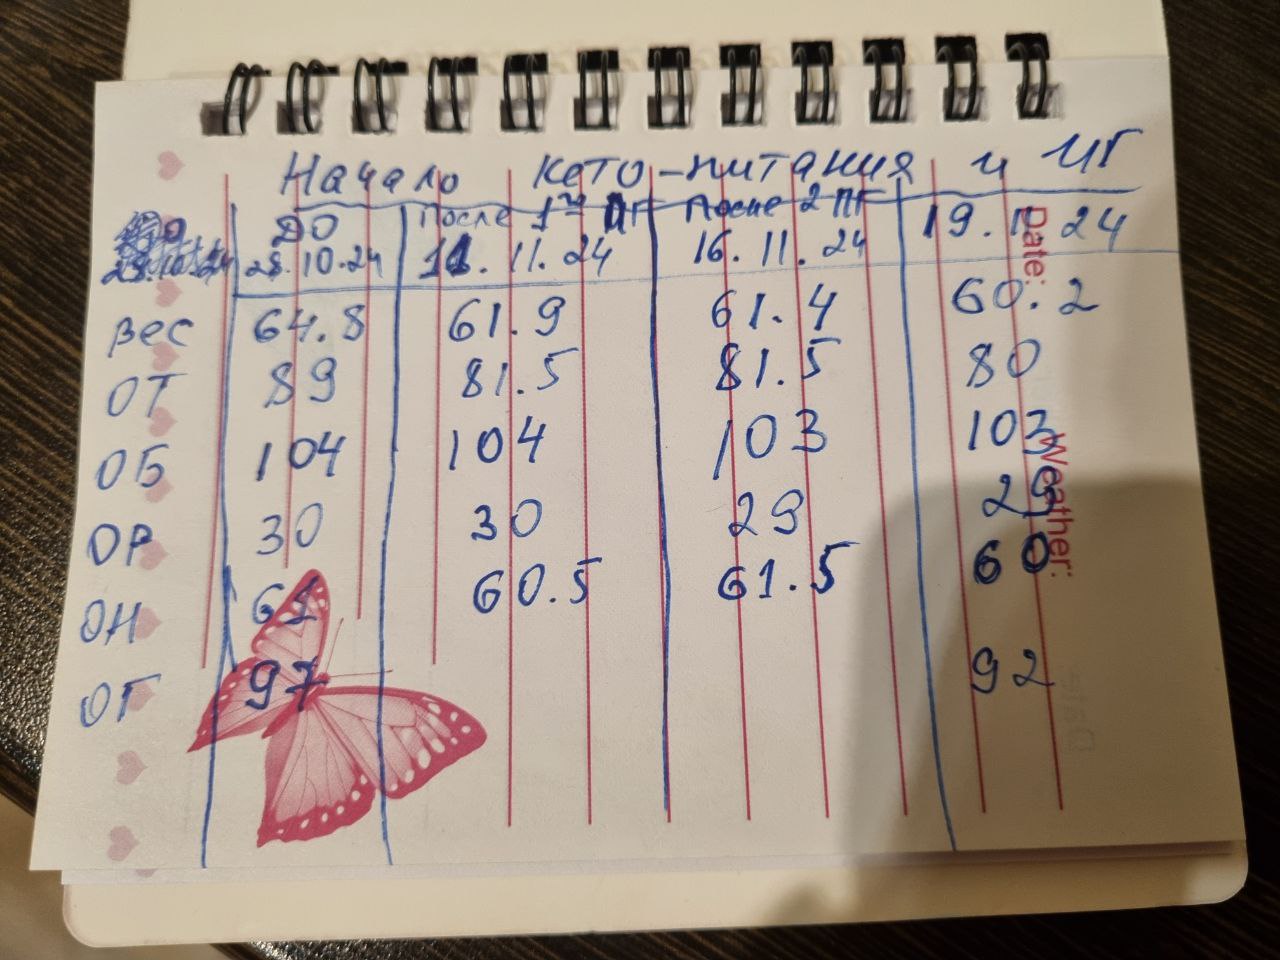 Начало кето-питания и ИГ
ДО После 1го ПГ После 2 ПГ 19.11.24
28.10.24 11.11.24 16.11.24
вес 64.8 61.9 61.4 60.2
ОТ 89 81.5 81.5 80
ОБ 104 104 103 103
ОР 30 30 29 29
ОН 61 60.5 61.5 60
ОГ 97 92
Date:
Weather: